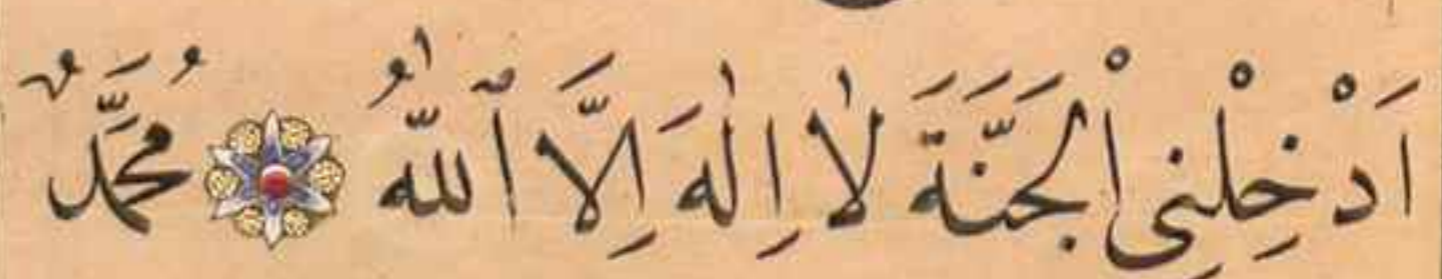 اَدْخِلْنِي اْلجَنَّةَ لَا اِلٰهَ اِلَّا ٱللّٰهُ ۞ مُحَمَّدٌ